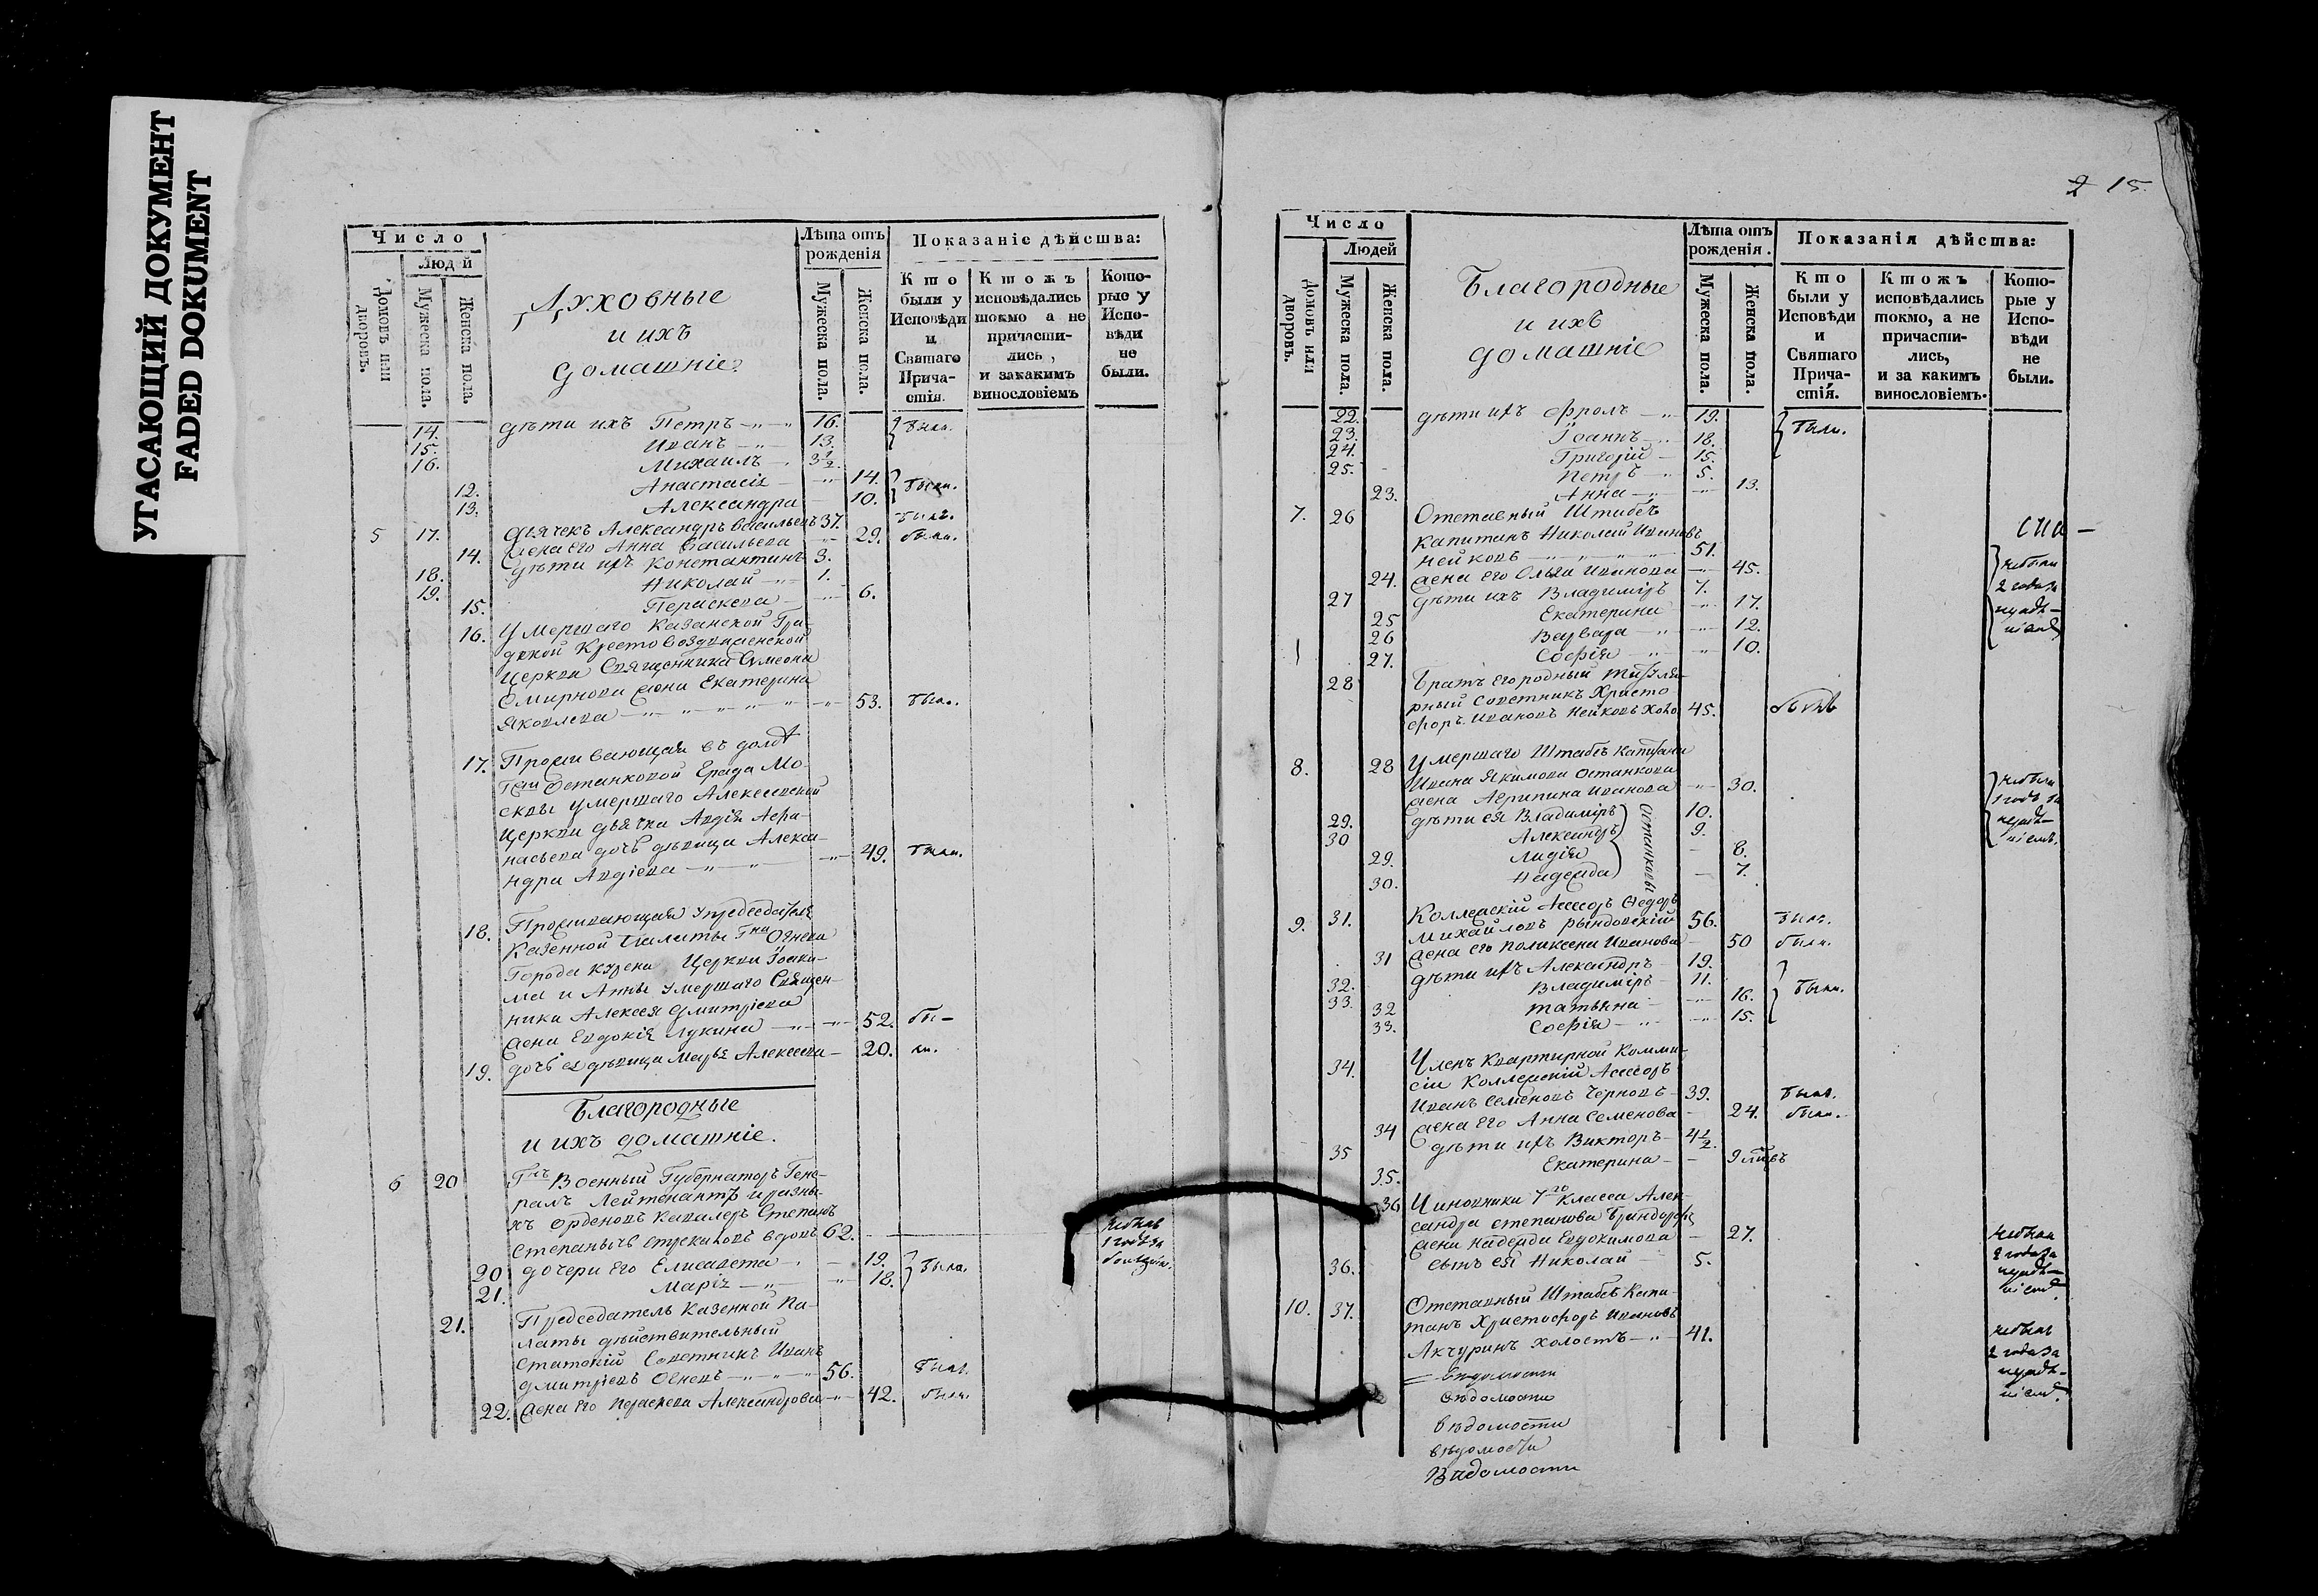 УГАСАЮЩИЙ ДОКУМЕНТ
FADED DOKUMENT
Число
Людей
Домовъ или дворовъ.
Мужеска пола.
Женска пола.
Духовные
и ихъ
домашніе
Лѣта отъ
рожденія
Мужеска пола.
Женска пола.
Показаніе дѣйства:
Кто
были у
Исповѣди
и
Святаго
Прича-
стія.
Ктожъ
исповѣдались
токмо а не
причасти-
лись,
и закакимъ
винословіемъ
Кото-
рые у
Испо-
вѣди
не
были.
14. дѣти ихъ Петръ 16. были.
15. Иванъ 13.
16. Михаилъ 3½.
12. Анастасія 14. были.
13. Александра 10.
5 17. Дьячекъ Александръ Васильевъ 37. былъ.
14. жена его Анна Васильева 29. была.
18. дѣти ихъ Константинъ 3.
19. Николай 1.
15. Параскева 6.
16. Умершаго Казанской Гра-
дской Крестовоздвиженской
Церкви Священника Симеона
Смирнова жена Екатерина
Яковлева 53. была.
17. Проживающая въ домѣ
Гжи Останковой Града Мо-
сквы умершаго Алексеевской
Церкви дьячка Авдія Афа-
насьева дочь дѣвица Алекса-
ндра Авдіева 49. была.
18. Проживающая у председателя
Казенной Палаты Гна Огнева
Города Курска Церкви Іоаки-
ма и Анны умершаго Священ-
ника Алексея Дмитріева
жена Евдокія Лукина 52. бы-
19. дочь ея дѣвица Марья Алексеева 20. ли.
Благородные
и ихъ домашніе.
6 20 Гнъ Военный Губернаторъ Гене-
ралъ Лейтенантъ и разны-
хъ орденовъ Кавалеръ Степанъ
Степанычъ Стрекаловъ вдовъ 62. небылъ
1 годъ за
болезнію.
20 дочери его Елисавета 19. были.
21. Марія 18.
21. Председатель Казенной Па-
латы дѣйствительный
Статскій Советникъ Иванъ
Дмитріевъ Огневъ 56. былъ.
22. жена его Параскева Александрова 42. была.
2 15.
Число
Людей
Домовъ или дворовъ.
Мужеска пола.
Женска пола.
Благородные
и ихъ
домашніе
Лѣта отъ
рожденія.
Мужеска пола.
Женска пола.
Показанія дѣйства:
Кто
были у
Исповѣди
и
Святаго
Прича-
стія.
Ктожъ
исповѣдались
токмо, а не
причасти-
лись,
и за какимъ
винословіемъ.
Кото-
рые у
Испо-
вѣди
не
были.
22. дѣти ихъ Фролъ 19. были.
23. Іоаннъ 18.
24. Григорій 15.
25. Петръ 5.
23. Анна 13.
7. 26 Отставный Штабсъ
Капитанъ Николай Ивановъ
Нейковъ 51.
24. жена его Ольга Иванова 45. небыли
27 дѣти ихъ Владиміръ 7. 2 года за
25 Екатерина 17. нерадѣ-
26 Варвара 12. ніемъ
27. Софія 10.
28 Братъ его родный Титуля-
рный Советникъ Христо
форъ Ивановъ Нейковъ Холо. 45. былъ
8. 28 Умершаго Штабсъ Капитана
Ивана Якимова Останкова
жена Агрипина Иванова 30. небыли
29. дѣти ея Владиміръ 10. 1 годъ за
30 Александръ 9. нерадѣ-
29. Лидія 8. ніемъ.
30. Надежда 7.
Останковы
9. 31. Коллежскій Ассесоръ Федоръ
Михайловъ Рындовскій 56. былъ.
31 жена его Поликсена Иванова 50 была.
32. дѣти ихъ Александръ 19. были.
33. Владиміръ 11.
32 Татьяна 16.
33. Софія 15.
34. Членъ Квартирной Комми-
сіи Коллежскій Ассесоръ
Иванъ Семеновъ Черновъ 39. былъ.
34 жена его Анна Семенова 24. была.
35 дѣти ихъ Викторъ 4½
35. Екатерина 9 м-въ
36 Чиновника 7го Класса Алек-
сандра Степанова Бриндорфъ
жена Надежда Евдокимова 27. небыли
36. сынъ ея Николай 5. 2 года за
нерадѣ-
ніемъ.
10. 37. Отставный Штабсъ Капи-
танъ Христофоръ Ивановъ
Акчуринъ холостъ 41. небылъ
2 года за
нерадѣ-
ніемъ.
Ведомости
ведомости
ведомости
ведомости
Ведомости